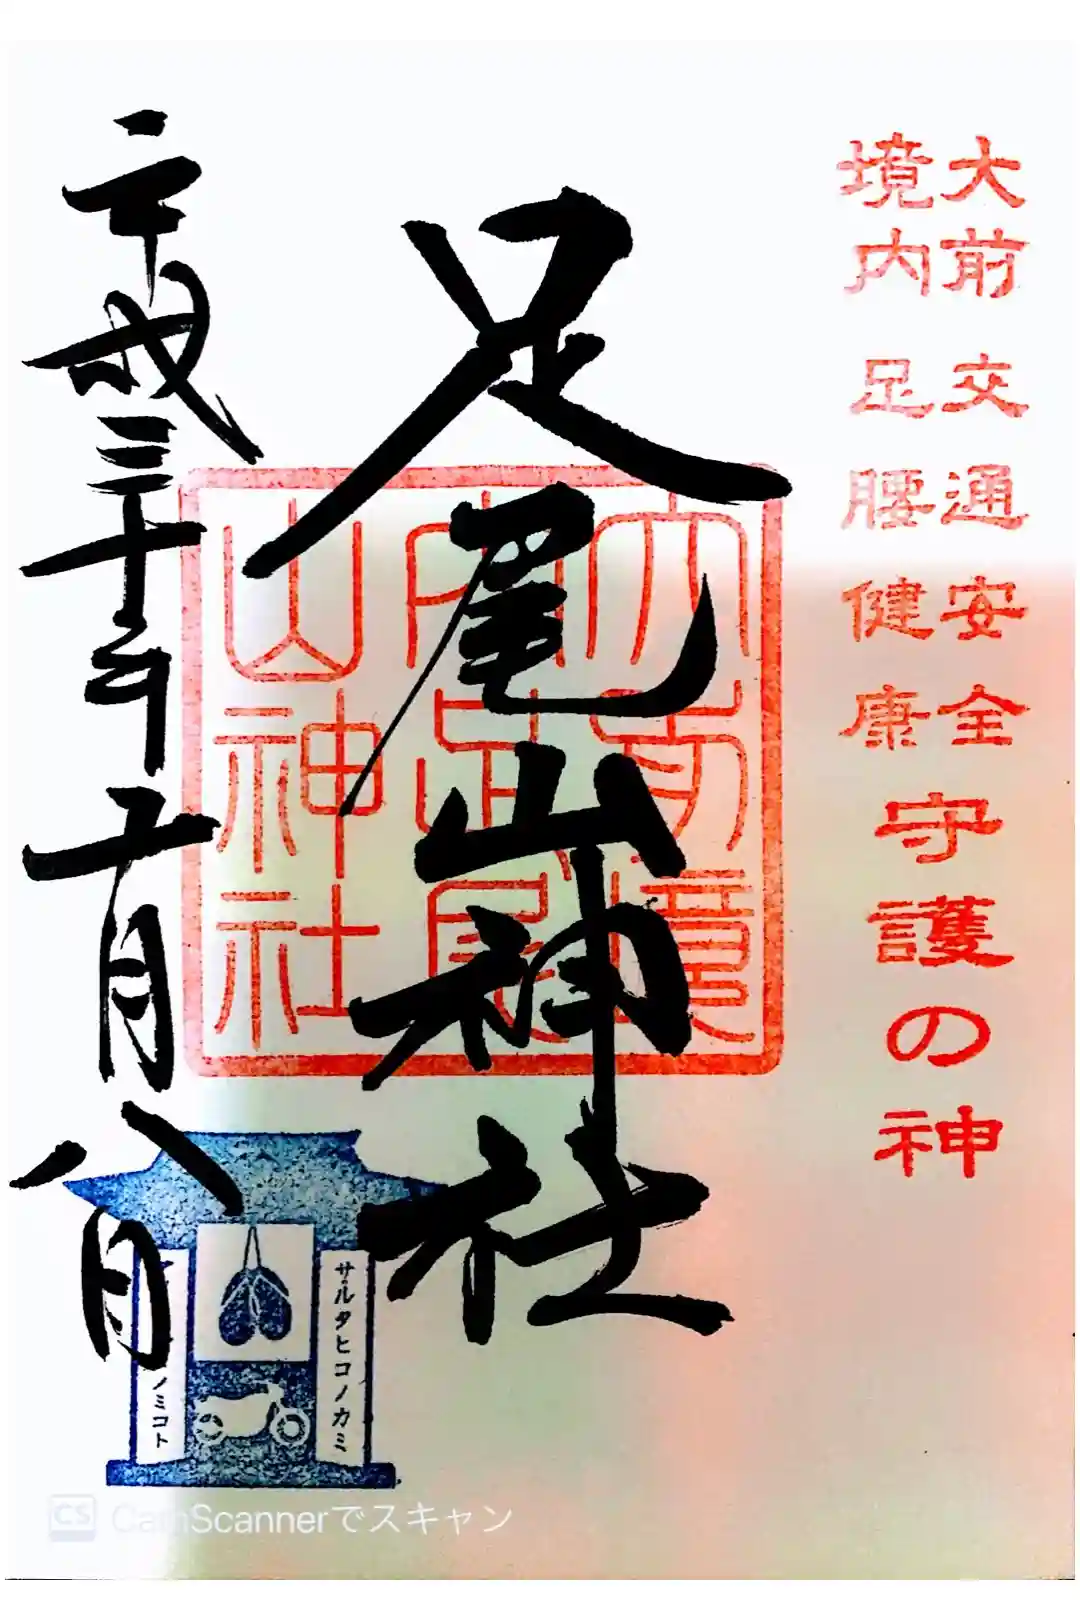 大前 交通安全
境内 足腰健康
守護の神
足尾山神社
平成三十年十月八日
大前
境内足尾
山神社
サルタヒコノカミ
ノミコト
CS CamScannerでスキャン